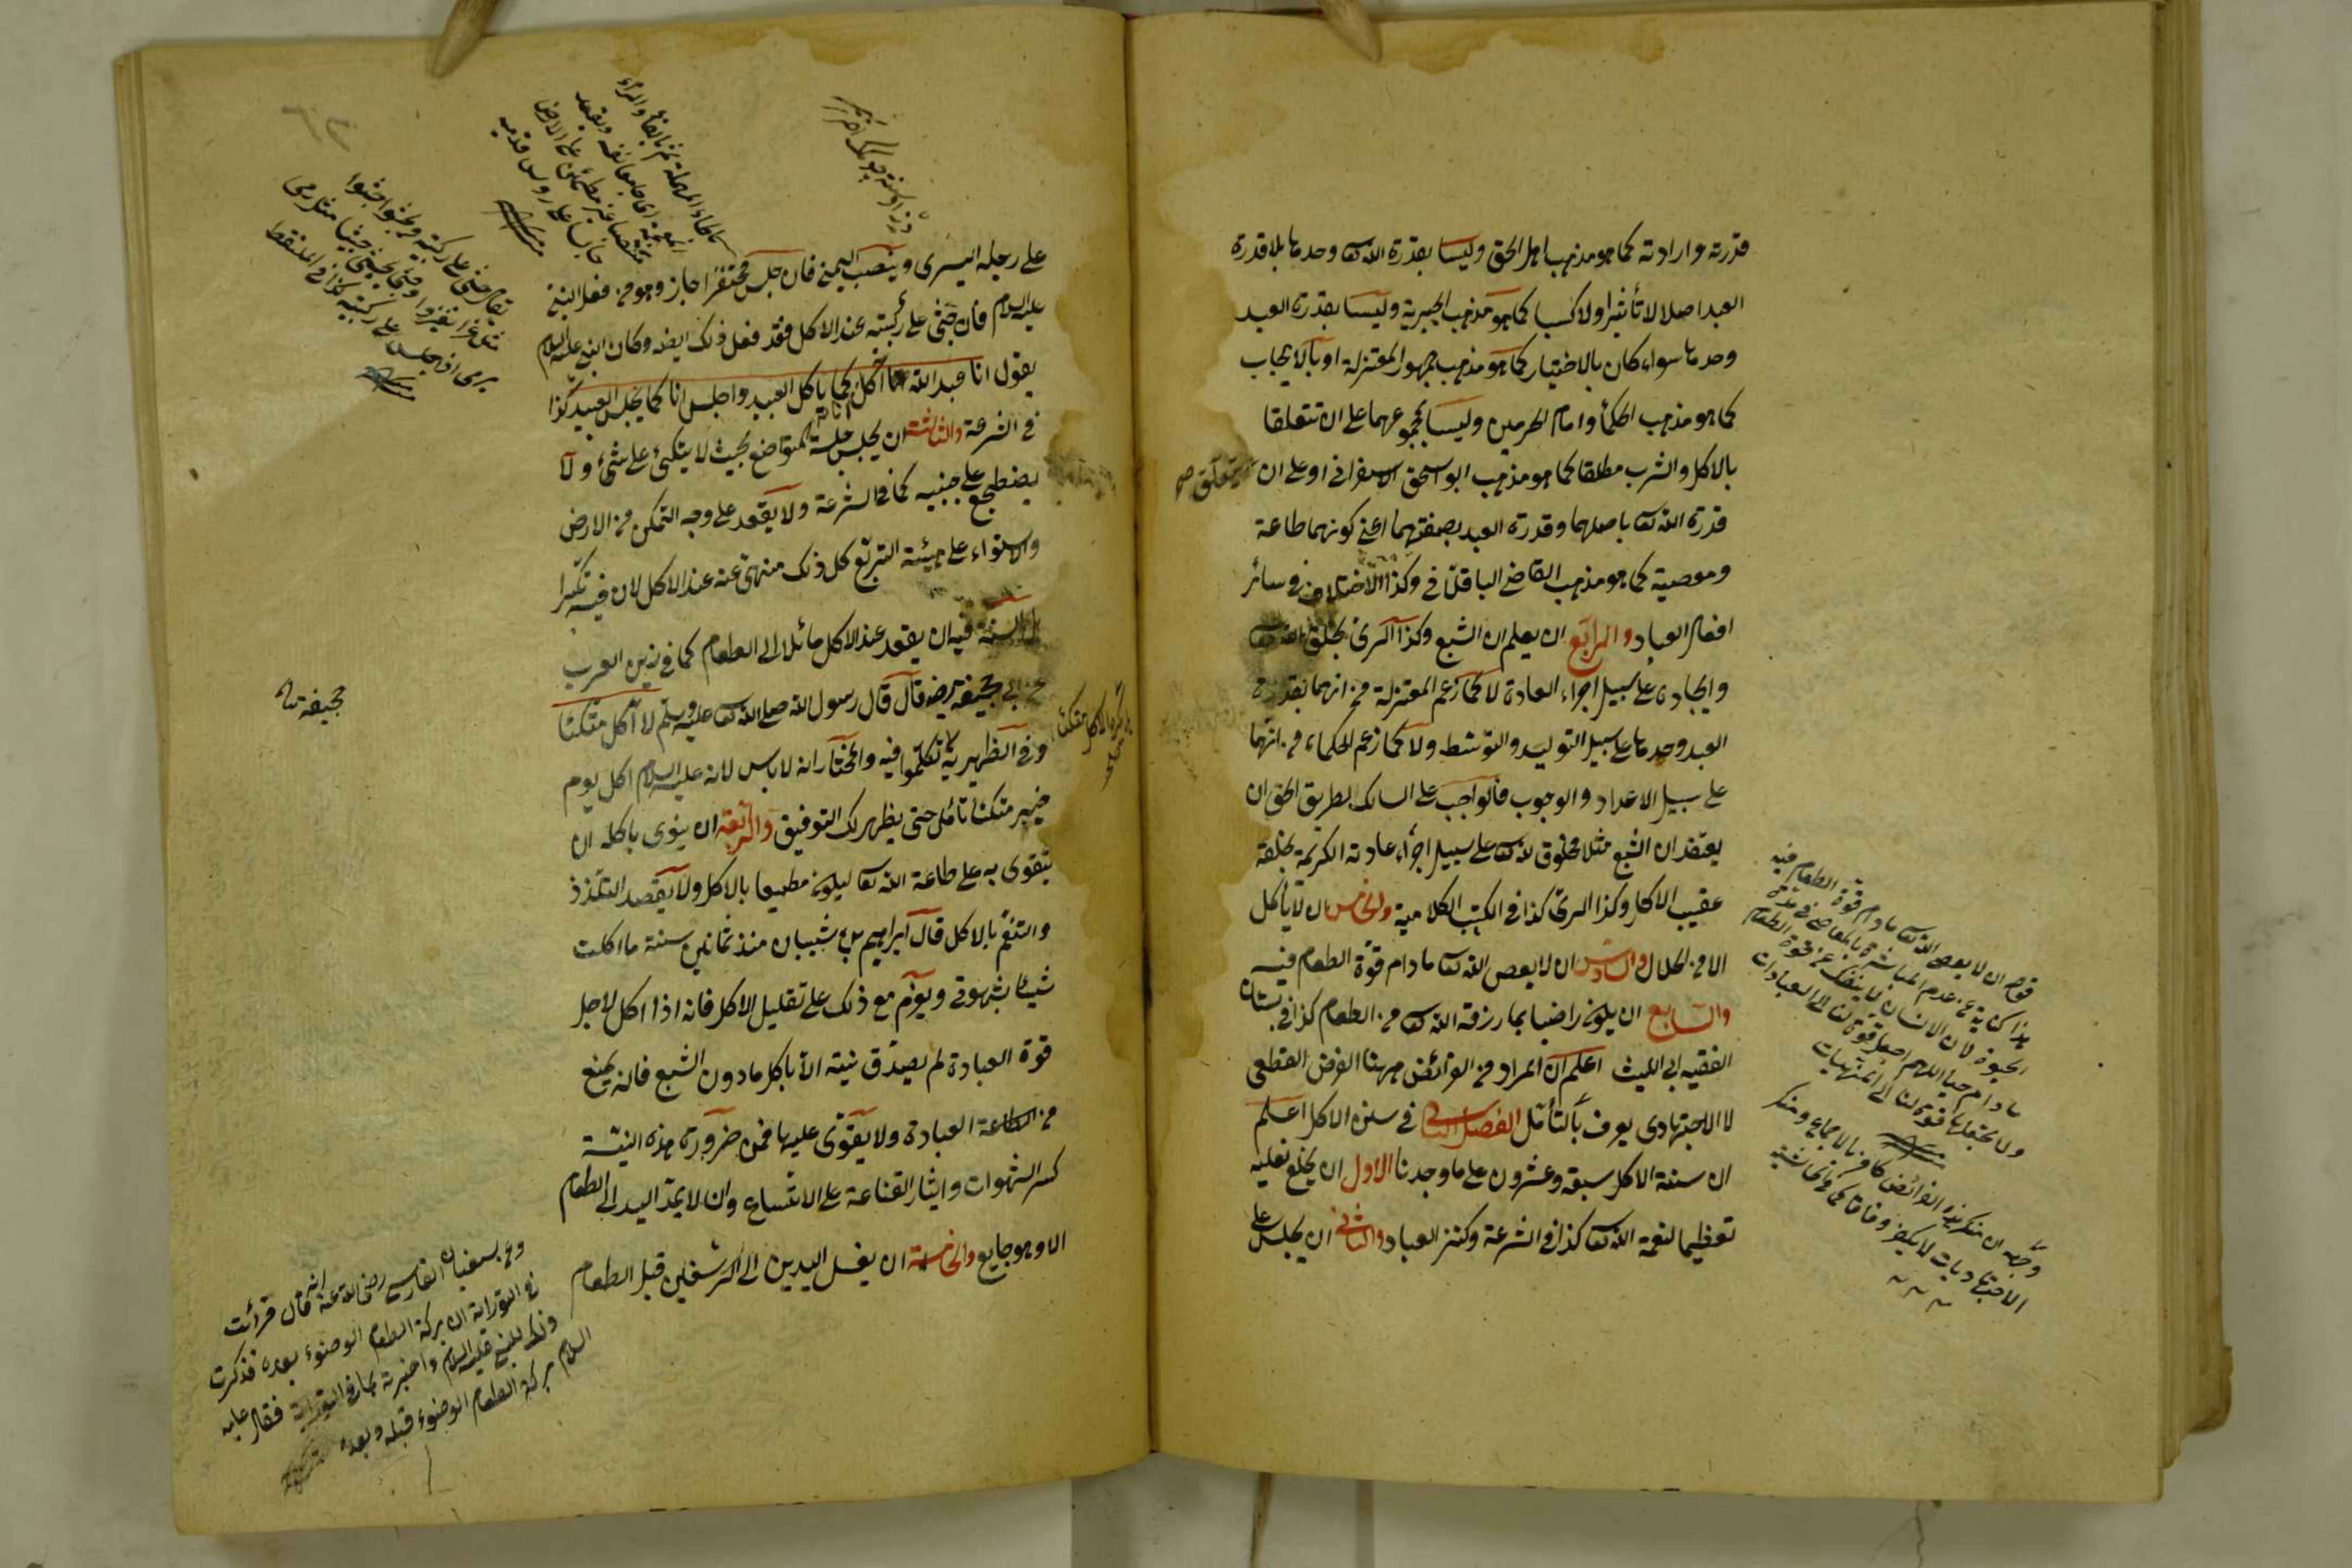 قدرته وارادته كما هو مذهب اهل الحق وليسا بقدرة الله تعا وحدها بلا قدرة
العبد اصلا لا تأثيرا ولا كسبا كما هو مذهب الجبرية وليسا بقدرة العبد
وحدها سواء كان بالاختيار كما هو مذهب جمهور المعتزلة او بالايجاب
كما هو مذهب الحكماء وامام الحرمين وليسا بمجموعهما على ان تتعلقا
بالاكل والشرب مطلقا كما هو مذهب ابو اسحق الاسفرانى او على ان يتعلق صح
قدرة الله تعا باصلهما وقدرة العبد بصفتهما اعنى كونهما طاعة
ومعصية كما هو مذهب القاضى الباقلانى وكذا الاختلاف فى سائر
افعال العباد والرابع ان يعلم ان الشبع وكذا الرى بخلق الله تعا
وايجاده على سبيل اجراء العادة لا كما زعم المعتزلة من انهما بقدرة
العبد وحدها على سبيل التوليد والتوسط ولا كما زعم الحكماء من انهما
على سبيل الاعداد والوجوب فالواجب على السالك لطريق الحق ان
يعتقد ان الشبع مثلا مخلوق لله تعا على سبيل اجراء عادته الكريمة بخلقه
عقيب الاكل وكذا الرى كذا فى الكتب الكلامية والخامس ان لا يأكل
الا من الحلال والسادس ان لا يعص الله تعا مادام قوة الطعام فيه
والسابع ان يكون راضيا بما رزقه الله تعا من الطعام كذا فى بستان
الفقيه ابى الليث اعلم ان المراد من الفرائض ههنا الفرض القطعى
لا الاجتهادى يعرف بالتأمل الفصل الثانى فى سنن الاكل اعلم
ان سنة الاكل سبعة وعشرون على ما وجدنا الاول ان يخلع نعليه
تعظيما لنعمة الله تعا كذا فى الشرعة وكنز العباد والثانى ان يجلس على
قوله ان لا يعص الله تعا مادام قوة الطعام فيه
هذا كناية عن عدم المباشرة بالمعاصى فى مدة
الحيوة لان الانسان لا ينفك عن قوة الطعام
مادام حيا اللهم اجعل قوة لنا الى العبادات
ولا تجعلها قوة لنا الى المنهيات
وجهه ان منكر هذه الفرائض كافر بالاجماع ومنكر
الاجتهاديات لا يكفر وفاقا كما فى حاشية
على رجله اليسرى وينصب اليمنى فان جلس محتفزا جاز وهو من فعل النبى
عليه السلام فان جثى على ركبتيه عند الاكل فقد فعل ذلك ايضا وكان النبى عليه السلام
يقول انا عبد الله آكل كما ياكل العبيد واجلس انا كما يجلس العبيد كذا
فى الشرعة والثالثة ان يجلس جلسة المتواضع بحيث لا يتكئ على شئ ولا
يضطجع على جنبيه كما فى الشرعة ولا يقعد على وجه التمكن من الارض
والاستواء على هيئة التربع كل ذلك منهى عنه عند الاكل لان فيه تكبرا
السنة فيه ان يقعد عند الاكل مائلا الى الطعام كما فى زين العرب
عن ابى جحيفة رضه قال قال رسول الله صلى الله تعا عليه وسلم لا آكل متكئا
وفى الظهيرية تكلموا فيه والمختار انه لا باس لانه عليه السلام اكل يوم
خيبر متكئا تأمل حتى يظهر لك التوفيق والرابعة ان ينوى باكله ان
يتقوى به على طاعة الله تعا ليكون مطيعا بالاكل ولا يقصد التلذذ
والتنعم بالاكل قال ابراهيم بن شيبان منذ ثمانين سنة ما اكلت
شيئا بشهوتى ويعزم مع ذلك على تقليل الاكل فانه اذا اكل لاجل
قوة العبادة لم يصدق نيته الا باكل ما دون الشبع فانه يمنع
من العبادة ولا يقوى عليها فمن ضرورة هذه النية
كسر الشهوات وايثار القناعة على الاتساع وان لا يمد اليد الى الطعام
الا وهو جايع والخامسة ان يغسل اليدين الى الرسغين قبل الطعام
جحيفة
وعن سفيان الفارسى رضى الله عنه انه قال قرأت
فى التوراة ان بركة الطعام الوضوء بعده فذكرت
ذلك للنبى عليه السلام واخبرته بما فى التوراة فقال عليه
السلام بركة الطعام الوضوء قبله وبعده